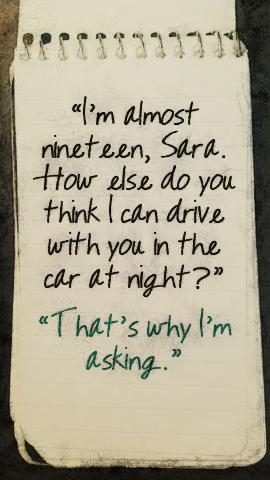 “I’m almost
nineteen, Sara.
How else do you
think I can drive
with you in the
car at night?”
“That’s why I’m
asking.”